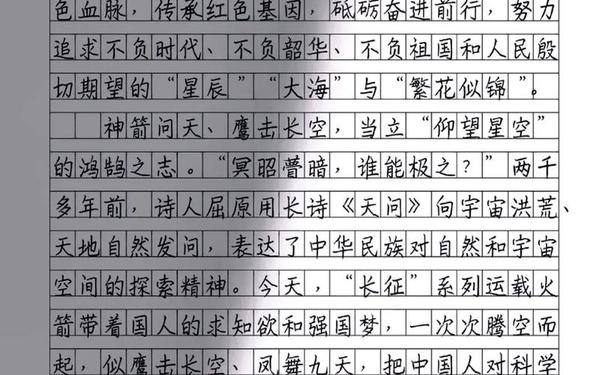 色血脉，传承红色基因，砥砺奋进前行，努力
追求不负时代、不负韶华、不负祖国和人民殷
切期望的“星辰”“大海”与“繁花似锦”。
神箭问天、鹰击长空，当立“仰望星空”
的鸿鹄之志。“冥昭瞢暗，谁能极之？”两千
多年前，诗人屈原用长诗《天问》向宇宙洪荒、
天地自然发问，表达了中华民族对自然和宇宙
空间的探索精神。今天，“长征”系列运载火
箭带着国人的求知欲和强国梦，一次次腾空而
起，似鹰击长空、凤舞九天，把中国人对科学